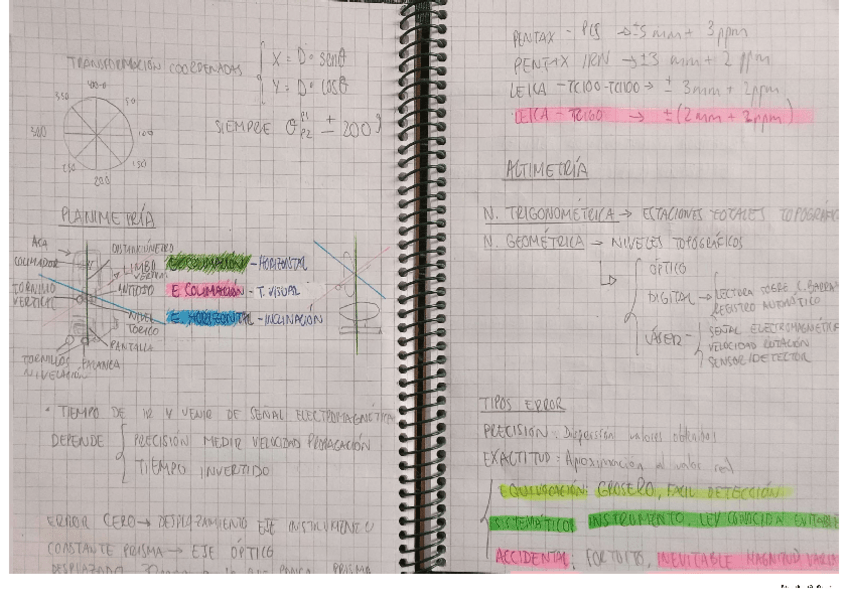 TRANSFORMACIÓN COORDENADAS
X = D · senθ
Y = D · cosθ
SIEMPRE θ P1 P2 ± 200g
400-0
350
50
300
100
250
150
200
PLANIMETRÍA
ASA
COLIMADOR
TORNILLO VERTICAL
TORNILLOS NIVELACIÓN
PALANCA
DISTANCIÓMETRO
LIMBO VERTICAL
NIVEL TÓRICO
PANTALLA
- HORIZONTAL
E COLIMACIÓN - T. VISUAL
E HORIZONTAL - INCLINACIÓN
· TIEMPO DE IR Y VENIR DE SEÑAL ELECTROMAGNÉTICA
DEPENDE
PRECISIÓN MEDIR VELOCIDAD PROPAGACIÓN
TIEMPO INVERTIDO
ERROR CERO → DESPLAZAMIENTO EJE INSTRUMENTO
CONSTANTE PRISMA → EJE ÓPTICO
DESPLAZADO PRISMA
PENTAX - PCS → ±5 mm + 3 ppm
PENTAX IRN → ±3 mm + 2 ppm
LEICA - TC100 - TC1100 → ± 3mm + 2ppm
LEICA - → ±(2mm + 2ppm)
ALTIMETRÍA
N. TRIGONOMÉTRICA → ESTACIONES TOTALES TOPOGRÁFIC
N. GEOMÉTRICA → NIVELES TOPOGRÁFICOS
ÓPTICO
DIGITAL → LECTURA SOBRE C. BARRA
REGISTRO AUTOMÁTICO
LÁSER - SEÑAL ELECTROMAGNÉTIC
VELOCIDAD ROTACIÓN
SENSOR/DETECTOR
TIPOS ERROR
PRECISIÓN: Dispersión valores obtenidos
EXACTITUD: Aproximación al valor real
EQUIVOCACIÓN: GROSERO, FACIL DETECCIÓN
SISTEMÁTICOS INSTRUMENTO, LEY CONOCIDA EVITABLE
ACCIDENTAL, FORTUITO, INEVITABLE MAGNITUD VARIA